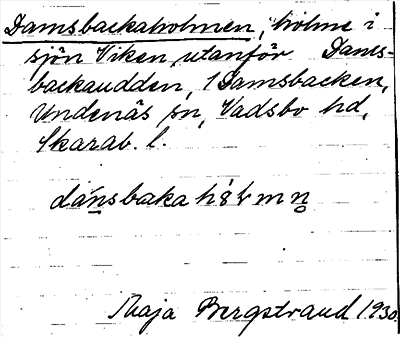 Damsbackaholmen, holme i
sjön Viken, utanför Dams-
backaudden, 1 Damsbacken,
Undenäs sn, Vadsbo hd,
Skarab. l.
Maja Bergstrand 1930.